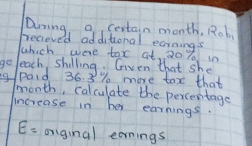 During a certain month, Robi
recieved additional earnings
which were tax at 20% in
ge each shilling. Given that she
eg paid 36.3% more tax that
month, calculate the percentage
increase in her earnings.
E = original earnings